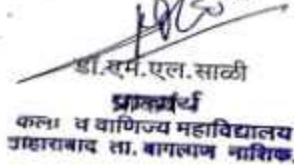 डॉ.एम.एल.साळी
प्राचार्य
कला व वाणिज्य महाविद्यालय
ताहाराबाद ता. बागलाण नाशिक